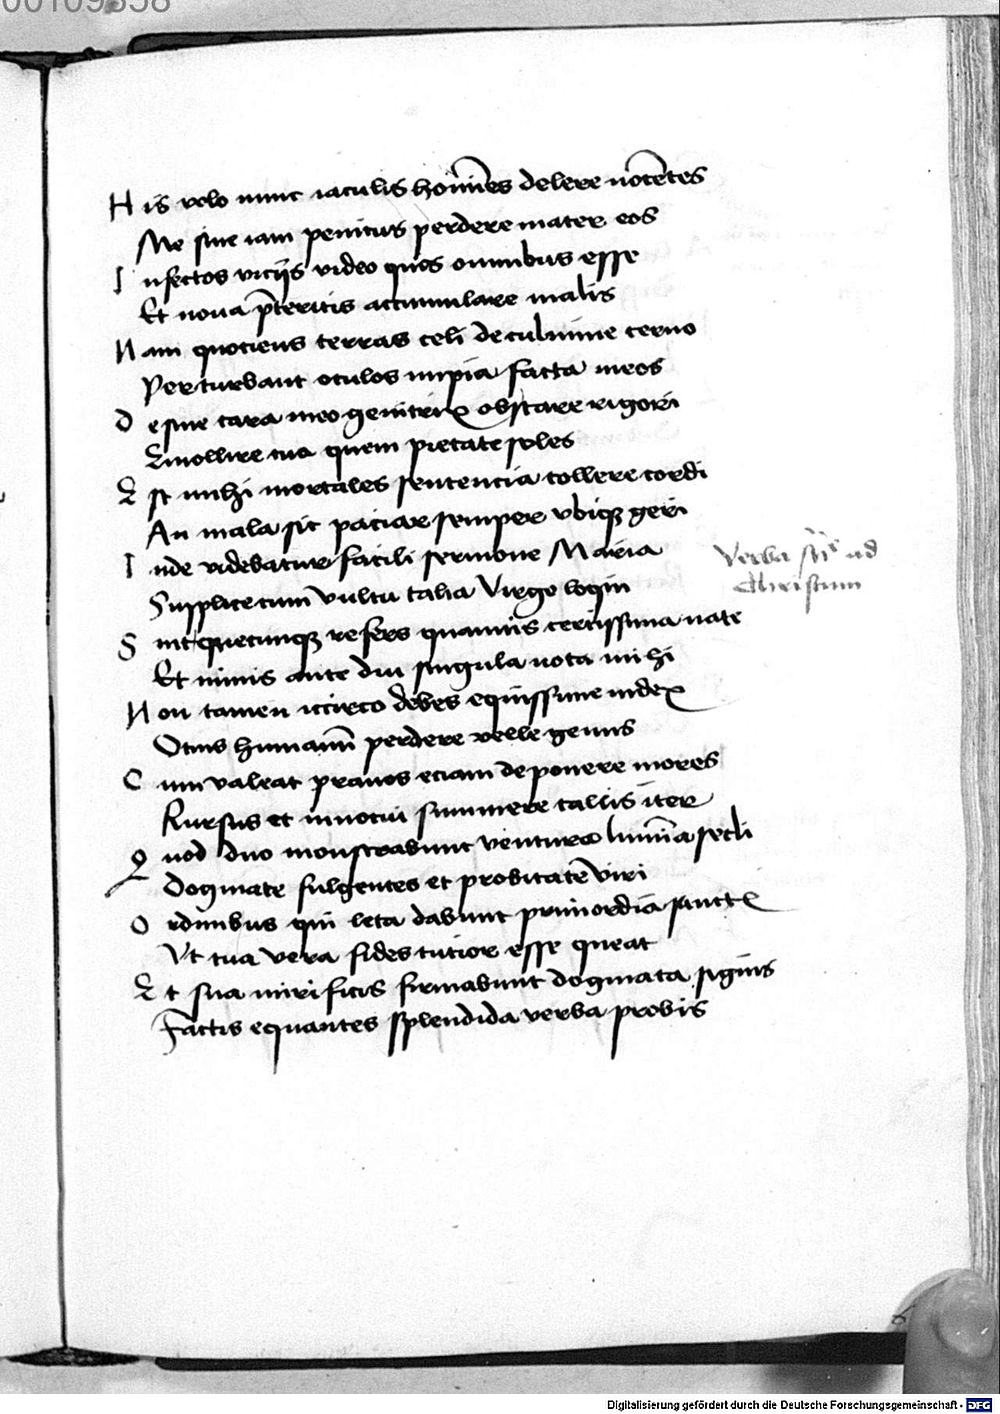 00109358
His volo nunc iaculis hoīnes delere nocētes
Me sine iam penitus perdere mater eos
Infectos vicijs video quos omnibus esse
Et noua p̄teritis accumulare malis
Nam quociens terras celi de culmine cerno
Perturbant oculos impia facta meos
Desine cara meo genitrix obstare rigori
Emollire tua quem pietate soles
Est michi mortales sentencia tollere cordi
An mala sic paciar semper vbiqꝫ geri
Inde videbatur facili sermone Maria
Supplice cum vultu talia Virgo loqui
Sint quecunqꝫ refers quamuis certissima nate
Et nimis ante diu singula nota michi
Non tamen iccirco debes equissime iudex
Om̄e humanū perdere velle genus
Cum valeat prauos eciam deponere mores
Rursus et innocui summere callis iter
Quod duo monstrabunt venturo lumīa secli
Dogmate fulgentes et probitate viri
Ordinibus qui leta dabunt primordia sanctis
Vt tua vera fides tutior esse queat
Et sua mirificis firmabunt dogmata signis
Factis equantes splendida verba probis
Verba ad
Christum
Digitalisierung gefördert durch die Deutsche Forschungsgemeinschaft - DFG